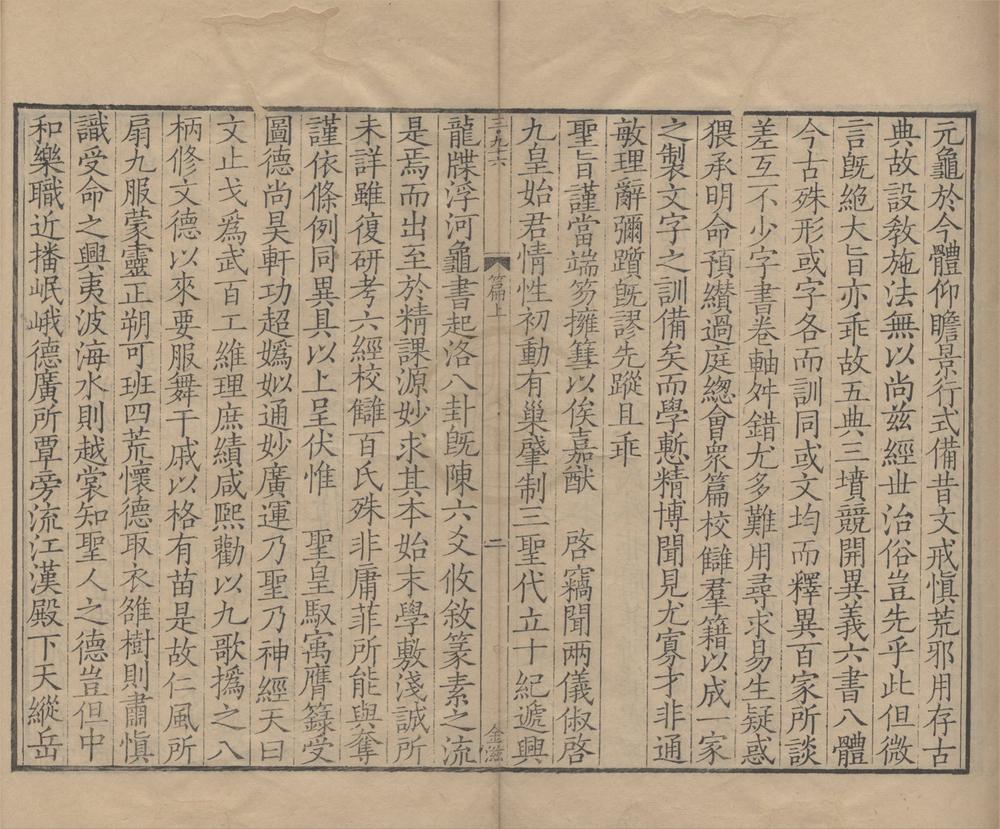 元龜於今體仰瞻景行式備昔文戒愼荒邪用存古
典故設教施法無以尚兹經丗治俗豈先乎此但微
言旣絶大旨亦乖故五典三墳競開異義六書八體
今古殊形或字各而訓同或文均而釋異百家所談
差互不少字書卷軸舛錯尤多難用尋求易生疑惑
猥承明命預纉過庭緫會衆篇校讎羣籍以成一家
之製文字之訓備矣而學慙精博聞見尤寡才非通
敏理辭彌躓旣謬先蹤且乖
聖旨謹當端笏擁篲以俟嘉猷　啓竊聞兩儀俶啓
九皇始君情性初動有巢肇制三聖代立十紀遞興
三九六
篇上
二
金滋
龍牒浮河龜書起洛八卦旣陳六爻攸敘篆素之流
是焉而出至於精課源妙求其本始末學敷淺誠所
未詳雖復研考六經校讎百氏殊非庸菲所能與奪
謹依條例同異具以上呈伏惟　聖皇馭㝢膺籙受
圖德尚昊軒功超嬀姒通妙廣運乃聖乃神經天曰
文止戈爲武百工維理庶績咸熙勸以九歌撝之八
柄修文德以來要服舞干戚以格有苗是故仁風所
扇九服蒙靈正朔可班四荒懷德取衣雒樹則肅愼
識受命之興夷波海水則越裳知聖人之德豈但中
和樂職近播岷峨德廣所覃旁流江漢殿下天縱岳